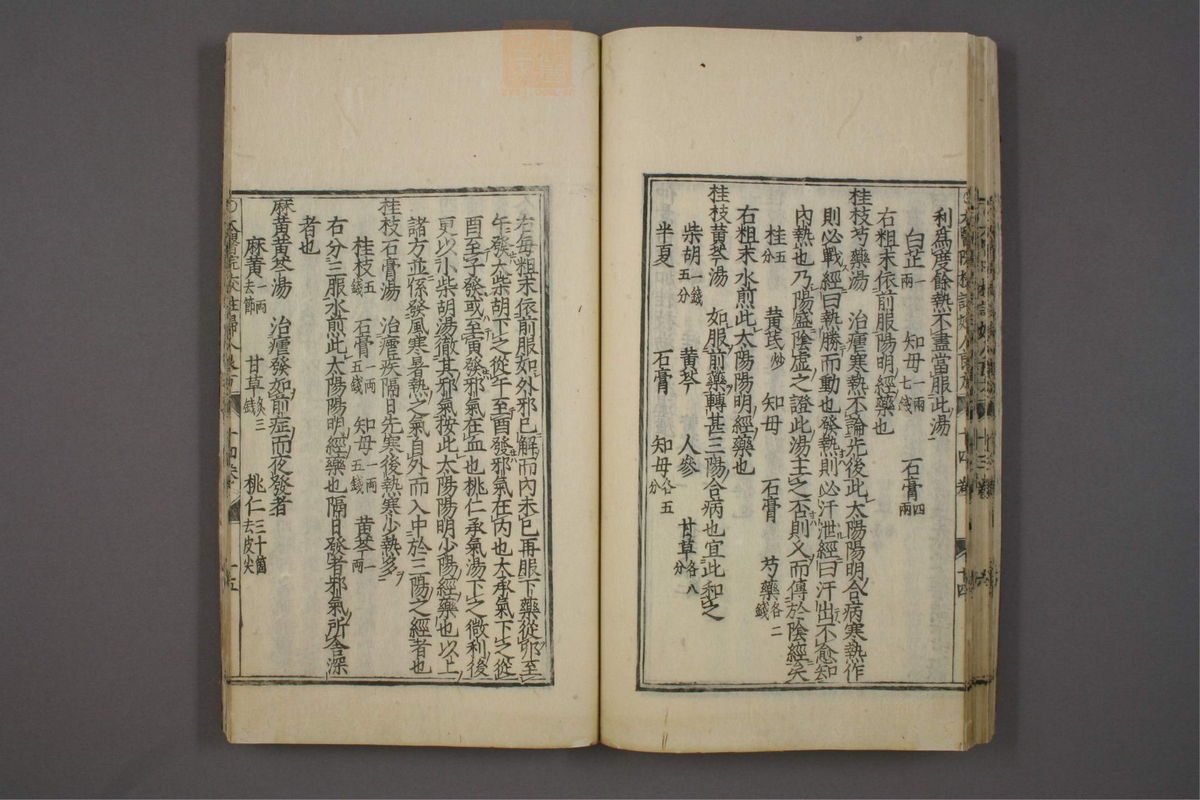 利為度餘熱不盡當服此湯
白芷一兩 知母一兩七錢 石膏四兩
右粗末依前服陽明經藥也
桂枝芍藥湯 治瘧寒熱不論先後此太陽陽明合病寒熱作
則必戰經曰熱勝而動也發熱則必汗泄經曰汗出不愈知
內熱也乃陽盛陰虛之證此湯主之否則久而傳於陰經矣
桂五分 黄芪炒 知母 石膏 芍藥各二錢
右粗末水煎此太陽陽明經藥也
桂枝黄芩湯 如服前藥轉甚三陽合病也宜此和之
柴胡一錢五分 黄芩 人參 甘草各八分
半夏 石膏 知母各五分
右每粗末依前服如外邪已解而內未已再服下藥從卯至
午發大柴胡下之從午至酉發邪氣在內也大承氣下之從
酉至子發或至寅發邪氣在血也桃仁承氣湯下之微利後
更以小柴胡湯徹其邪氣按此太陽陽明少陽經藥也以上
諸方並係發風寒暑熱之氣自外而入中於三陽之經者也
桂枝石膏湯 治瘧疾隔日先寒後熱寒少熱多
桂枝五錢 石膏一兩五錢 知母一兩五錢 黄芩一兩
右分三服水煎此太陽陽明經藥也隔日發者邪氣所舍深
者也
麻黄黄芩湯 治瘧發如前症而夜發者
麻黄一兩去節 甘草炙三錢 桃仁三十箇去皮尖